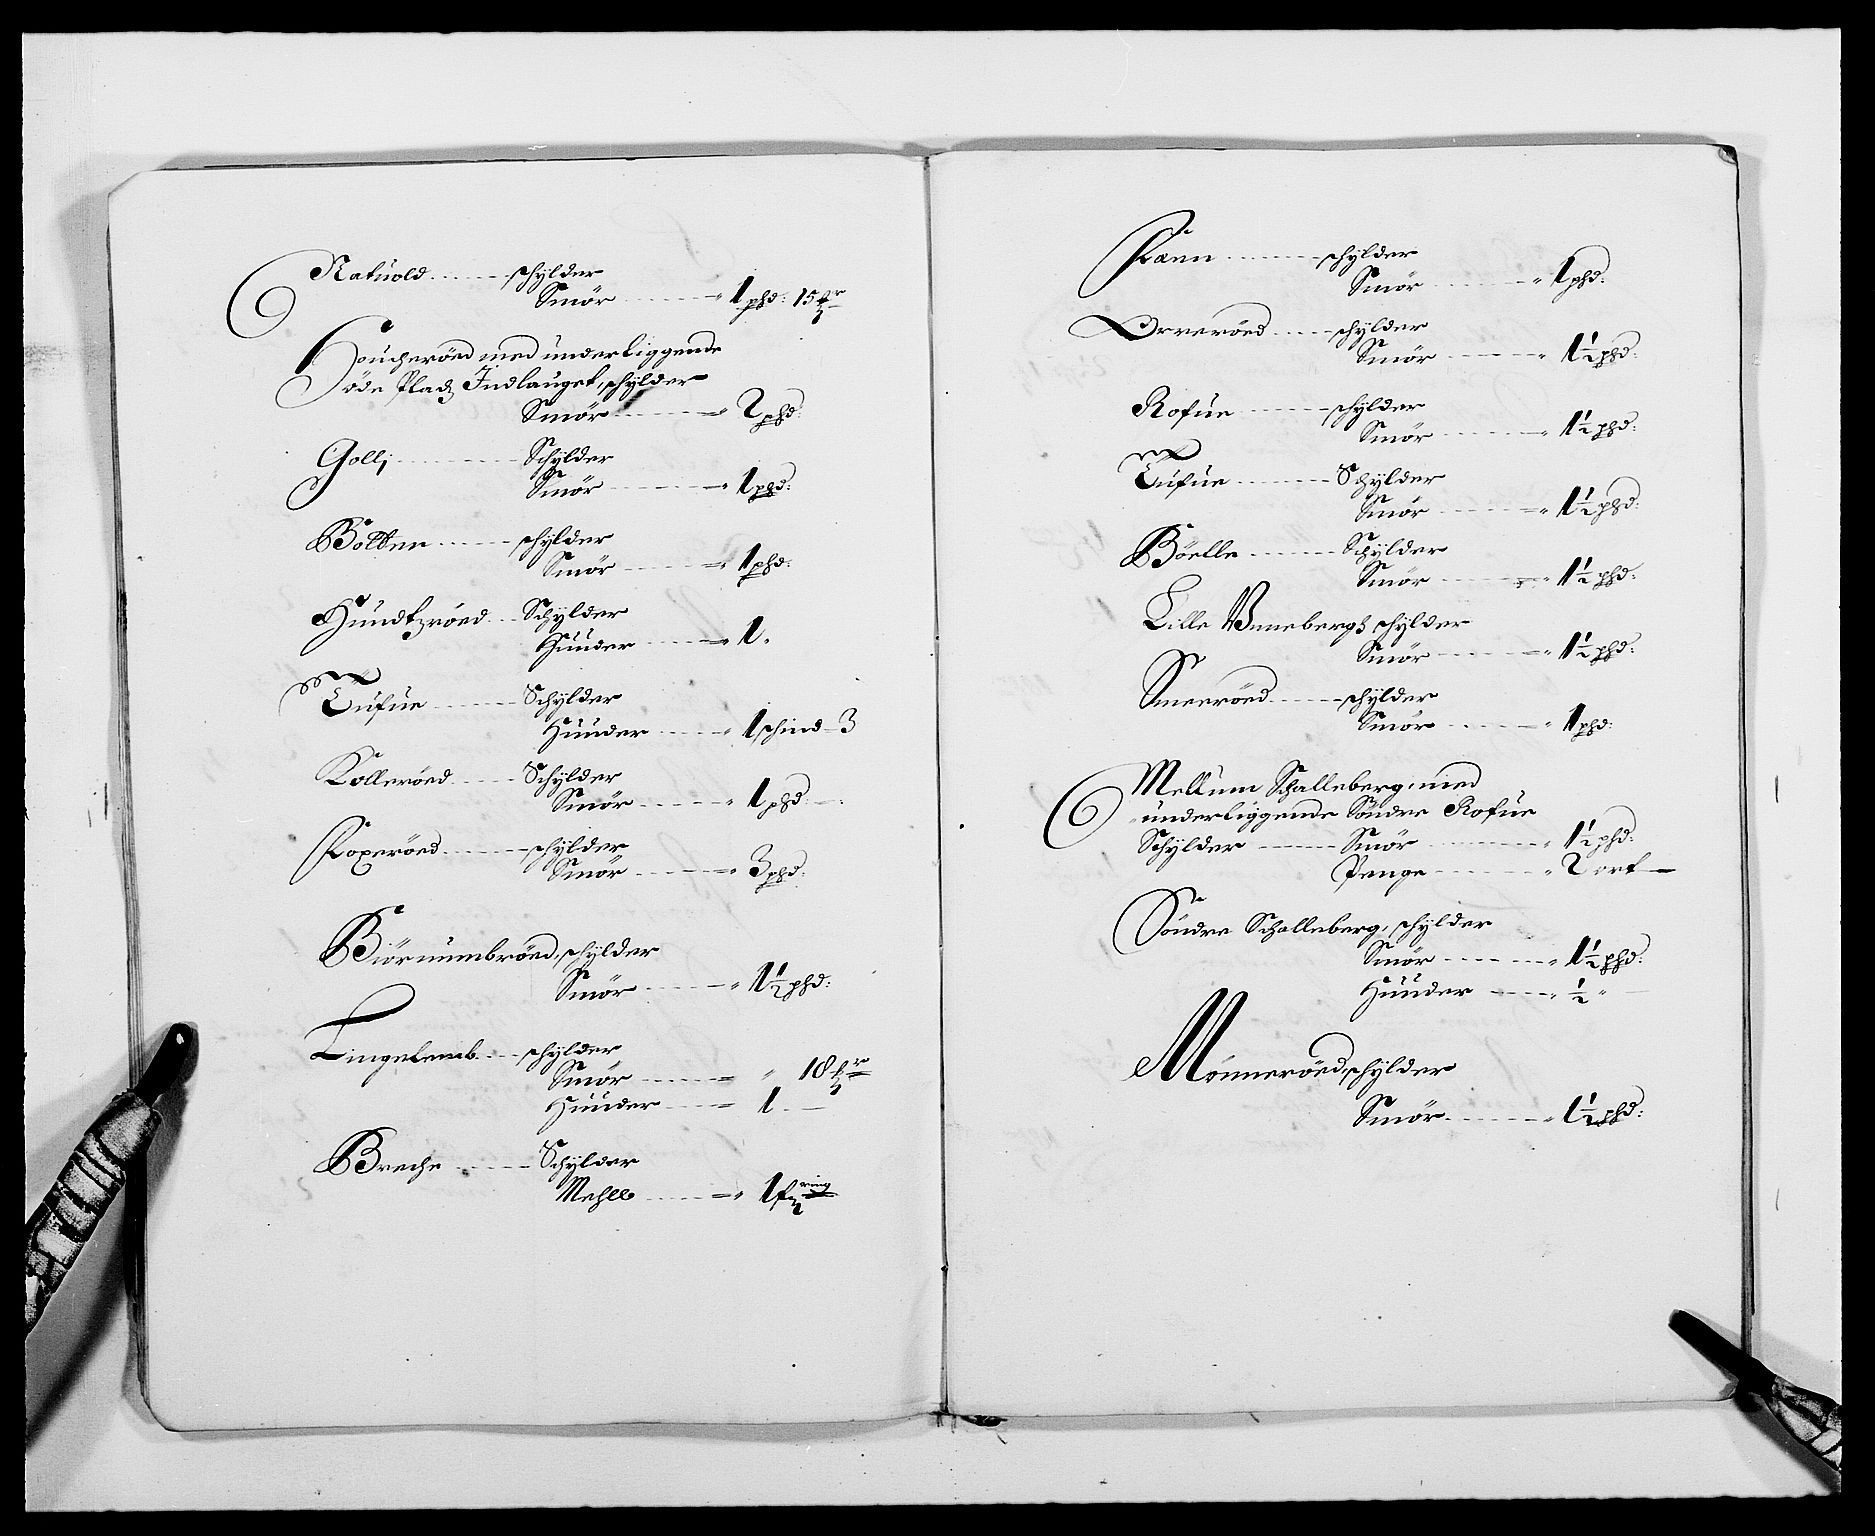 Natuold ...... schylder
Smör ...... 1 phd: 15 
Houcheröed med underliggende
öde Pladz Indlauget, schylder
Smör ...... 2 phd:
Gollj ...... Schylder
Smör ...... 1 phd:
Bolten ...... schylder
Smör ...... 1 phd:
Hundtzröed ... Schylder
Huuder ...... 1.
Tufue ...... Schylder
Huuder ...... 1 schind 3
Kolleröed ...... Schylder
Smör ...... 1 phd:
Roperöed ...... schylder
Smör ...... 3 phd:
Biörnumbröed, schylder
Smör ...... 1½ phd:
Lingelemb ... schylder
Smör ...... " 18
Huuder ...... 1.
Breche ...... Schylder
Mehll ...... 1 fring
Rænn ...... schylder
Smör ...... 1 phd:
Orreröed ...... schylder
Smör ...... 1½ phd:
Rofue ...... schylder
Smör ...... 1½ phd:
Tufue ...... Schylder
Smör ...... 1½ phd:
Böelle ...... Schylder
Smör ...... 1½ phd:
Lille Unneberg, schylder
Smör ...... 1½ phd:
Smeeröed ...... schylder
Smör ...... 1 phd:
Mellum Schalleberg, med
underliggende Söndre Rofue
Schylder ...... Smör ...... 1½ phd:
Penge ...... 2 ort
Söndre Schalleberg, schylder
Smör ...... 1½ phd:
Huuder ...... ½ "
Mönneröed schylder
Smör ...... 1½ phd: